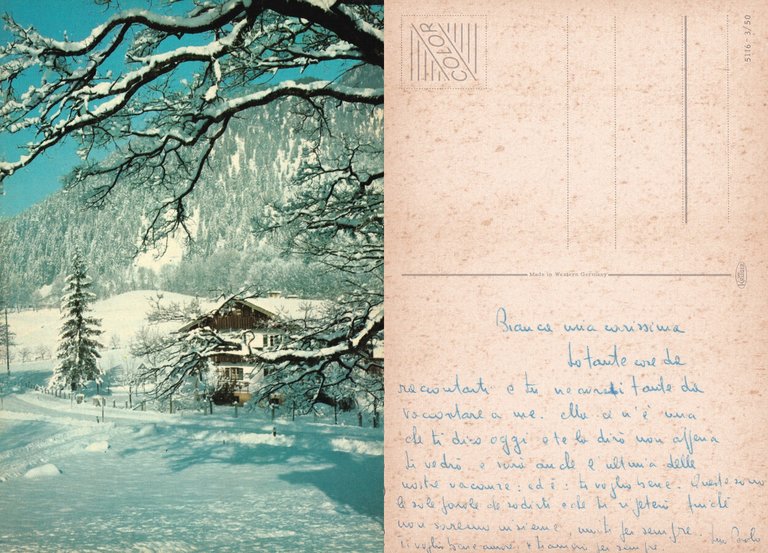 COLOR
5116 3/50
Made in Western Germany
Bianca mia carissima
ho tante cose da
raccontarti e tu ne avrai tante da
raccontare a me. Ma ce n'è una
che ti dico oggi e te la dirò non appena
ti vedrò e sarà anche l'ultima delle
nostre vacanze: ed è: ti voglio bene. Queste sono
le sole parole che ti ripeterò finché
non saremo insieme uniti per sempre. tuo Paolo
ti voglio bene amore, per sempre